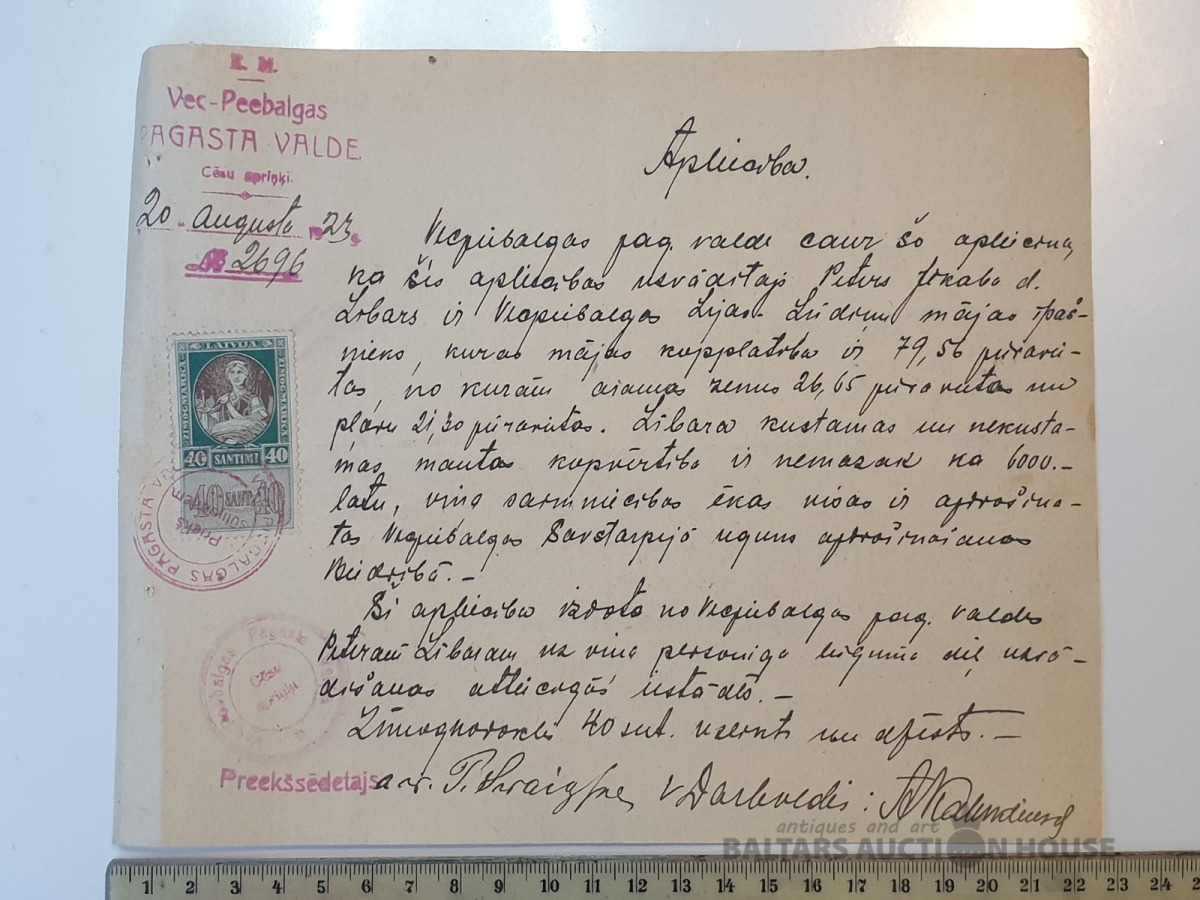 E. M.
Vec-Peebalgas
PAGASTA VALDE
Cēsu apriņķī.
20. augustā 1923.
№ 2696
Apliecība.
Vecpiebalgas pag. valde caur šo apliecina,
ka šīs apliecības uzrādītājs Pēters Jēkaba d.
Lībars ir Vecpiebalgas Lejas- mājas īpaš-
nieks, kuras mājas kopplatība ir 79,56 pūravie-
tas, no kurām aramas zemes 26,65 pūravietas un
pļavu 21,30 pūravietas. Lībara kustamas un nekusta-
mas mantas kopvērtība ir nemazak ka 6000.-
latu, viņa saimniecības ēkas visas ir apdrošina-
tas Vecpiebalgas Savstarpējā uguns apdrošināšanas
Biedrībā. -
Šī apliecība izdota no Vecpiebalgas pag. valdes
Pēteram Lībaram uz viņa personīgā lūguma dēļ uzrā-
dīšanas attiecīgās iestādēs. -
Zīmognodoklis 40 sant. ņemts un dzēsts. -
LATVIJA
ZĪMOGMARKA
ZĪMOGMARKA
40 SANTIMI 40
40 SANT. 40
PAGASTA
Pagasta
Cēsu
Preekšsēdetajs
Darbvedis:
antiques and art
BALTARS AUCTION HOUSE
1 2 3 4 5 6 7 8 9 10 11 12 13 14 15 16 17 18 19 20 21 22 23 24